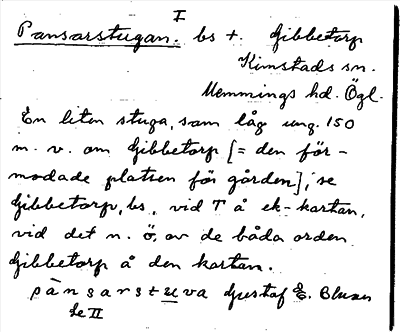 I
Pansarstugan. bs t. Gibbetorp
Kimstads sn.
Memmings hd. Ögl.
En liten stuga, som låg ung. 150
m. v. om Gibbetorp [= den för-
modade platsen för gården], se
Gibbetorp, bs, vid T å ek-kartan,
vid det n. ö. av de båda orden
Gibbetorp å den kartan.
pànsarstuva Gustaf E.
Se II